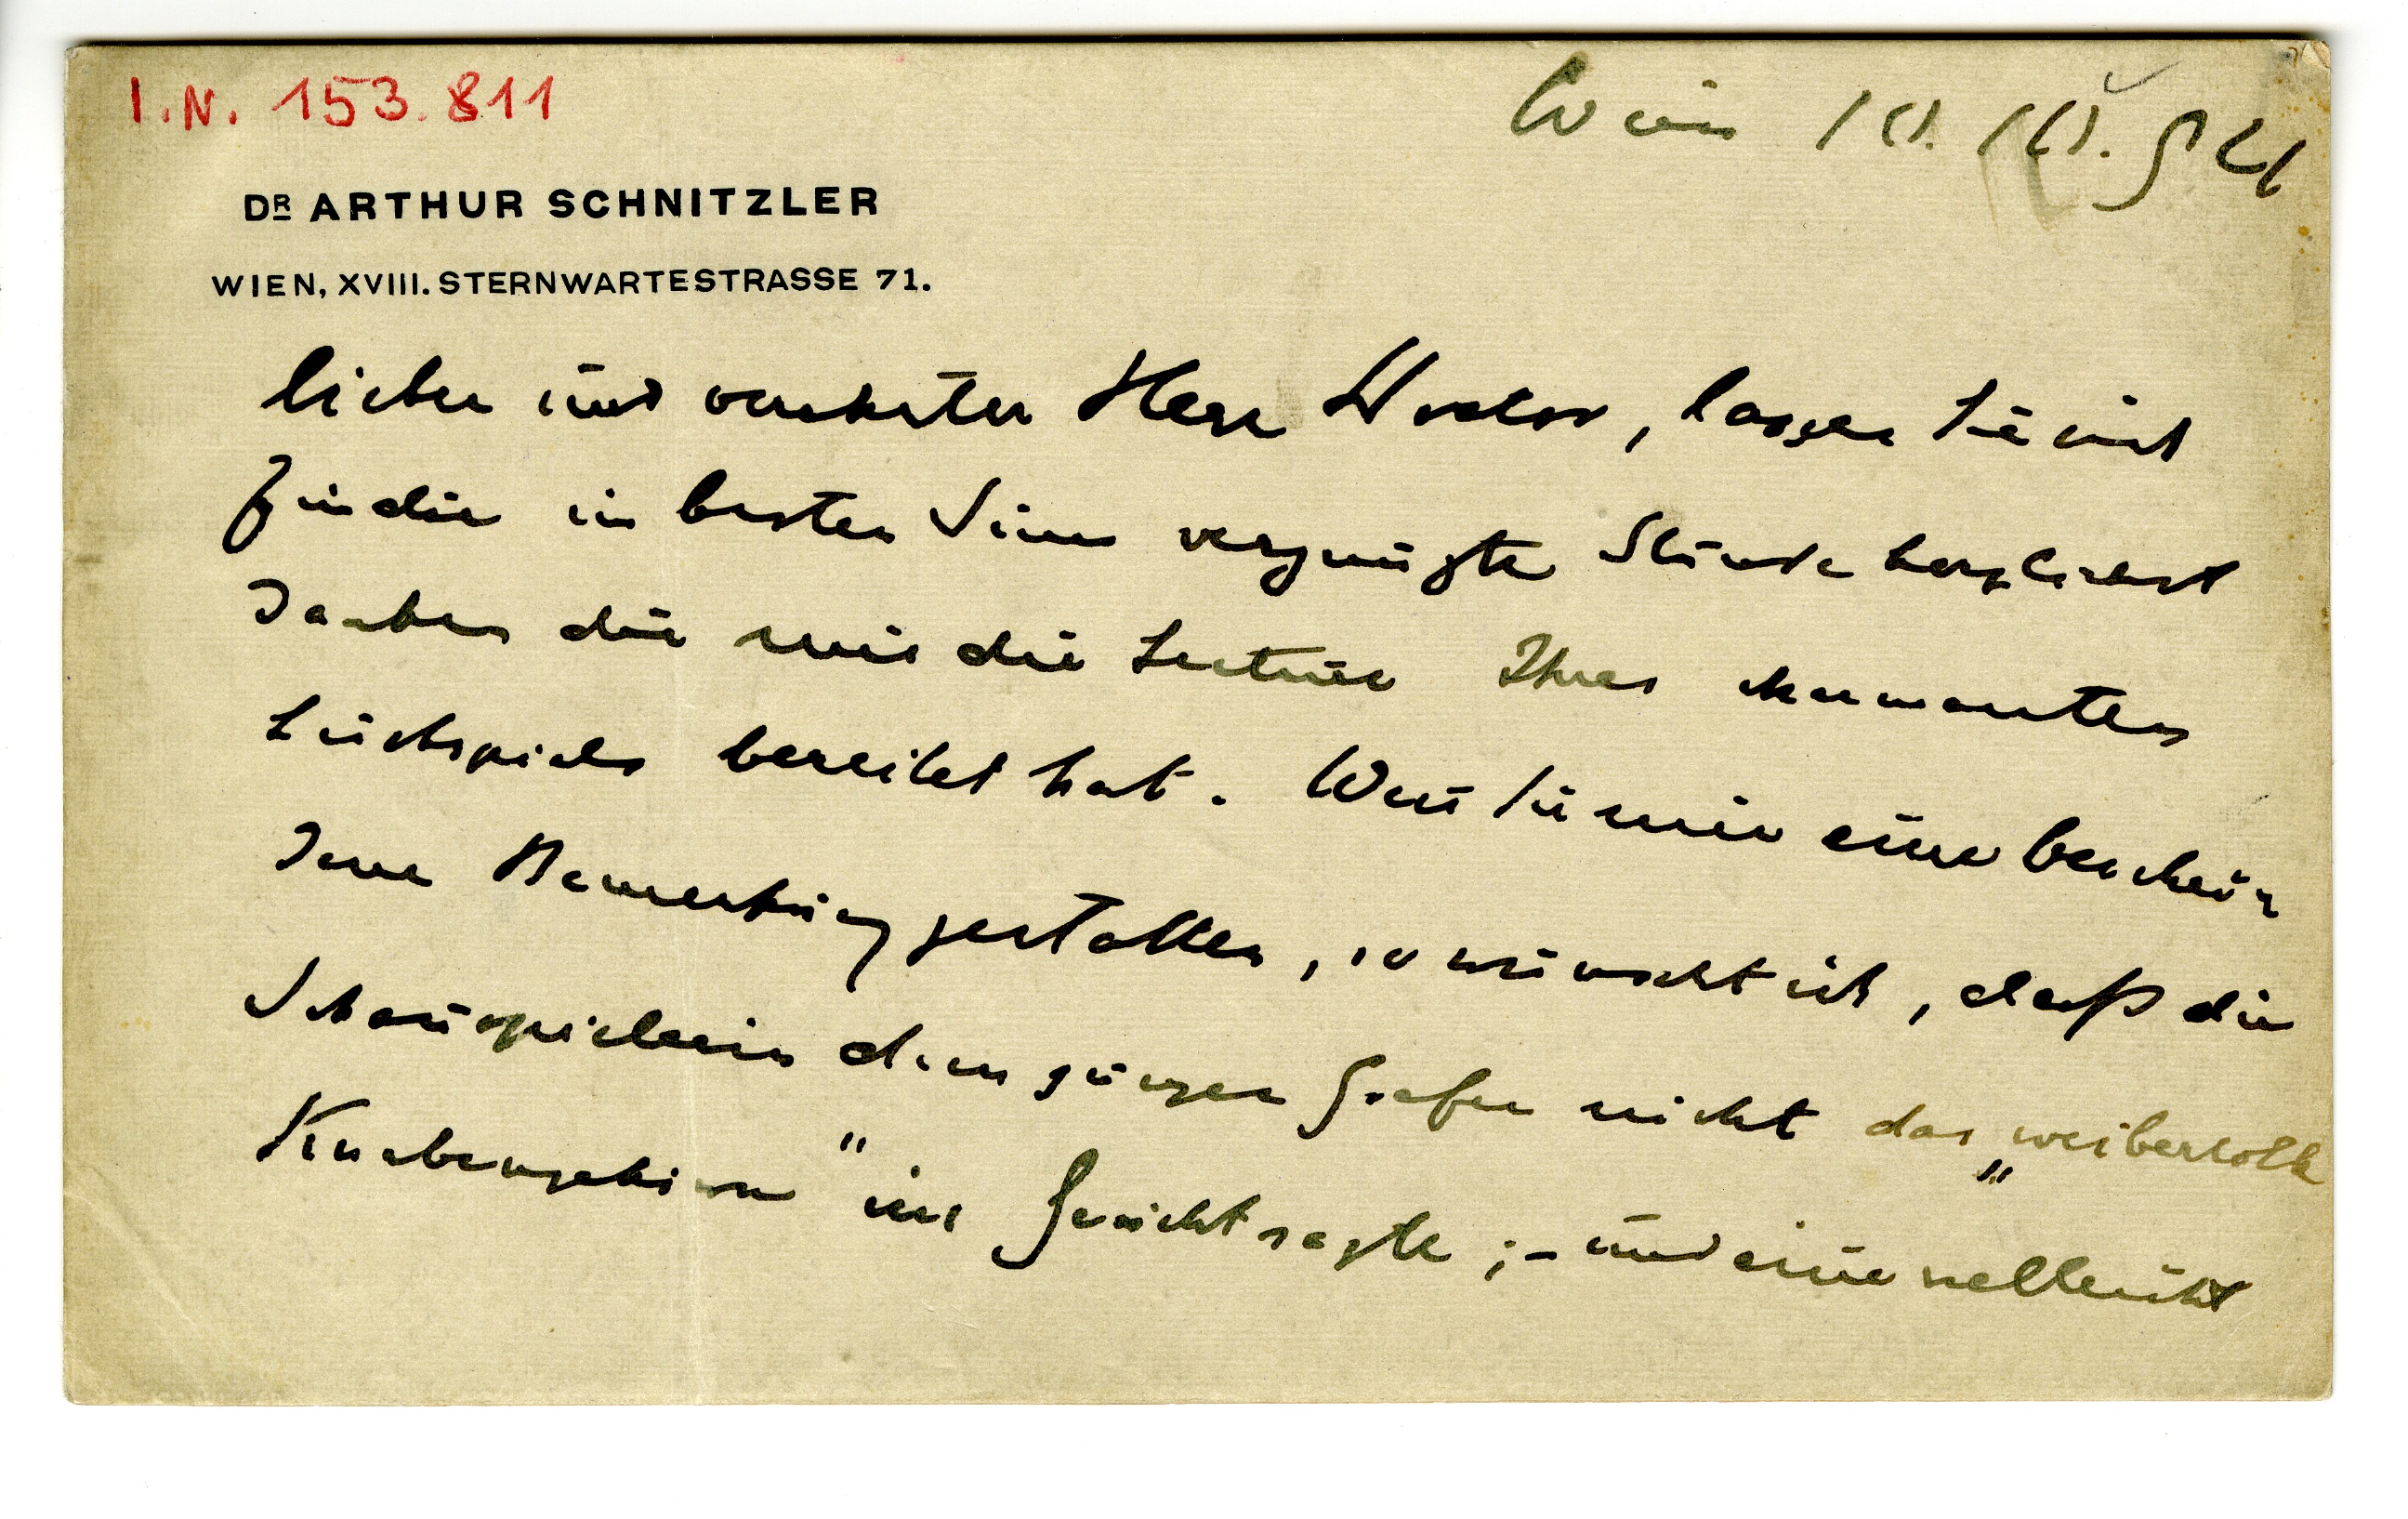 I.N. 153.811
Wien 10. 10. 921
DR ARTHUR SCHNITZLER
WIEN, XVIII. STERNWARTESTRASSE 71.
lieber und verehrter Herr, lassen Sie mich
für die im besten Sinn vergnügte Stunde herzlichst
danken die mir die Lectüre Ihres charmanten
Lustspiels bereitet hat. Wenn Sie mir eine beschei-
dene Bemerkung gestatten, so wünscht ich, daß die
Schauspielerin dem jungen Grafen nicht das „weibertolle
Knabengehirn" ins Gesicht sagte; – und eine vielleicht